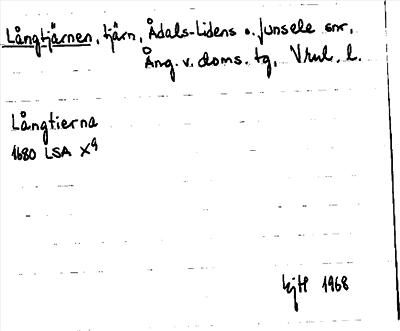 Långtjärnen, tjärn, Ådals-Lidens o. Junsele snr,
Ång. v. doms. tg, Vrml. l.
Långtierna
1680 LSA X9
1968